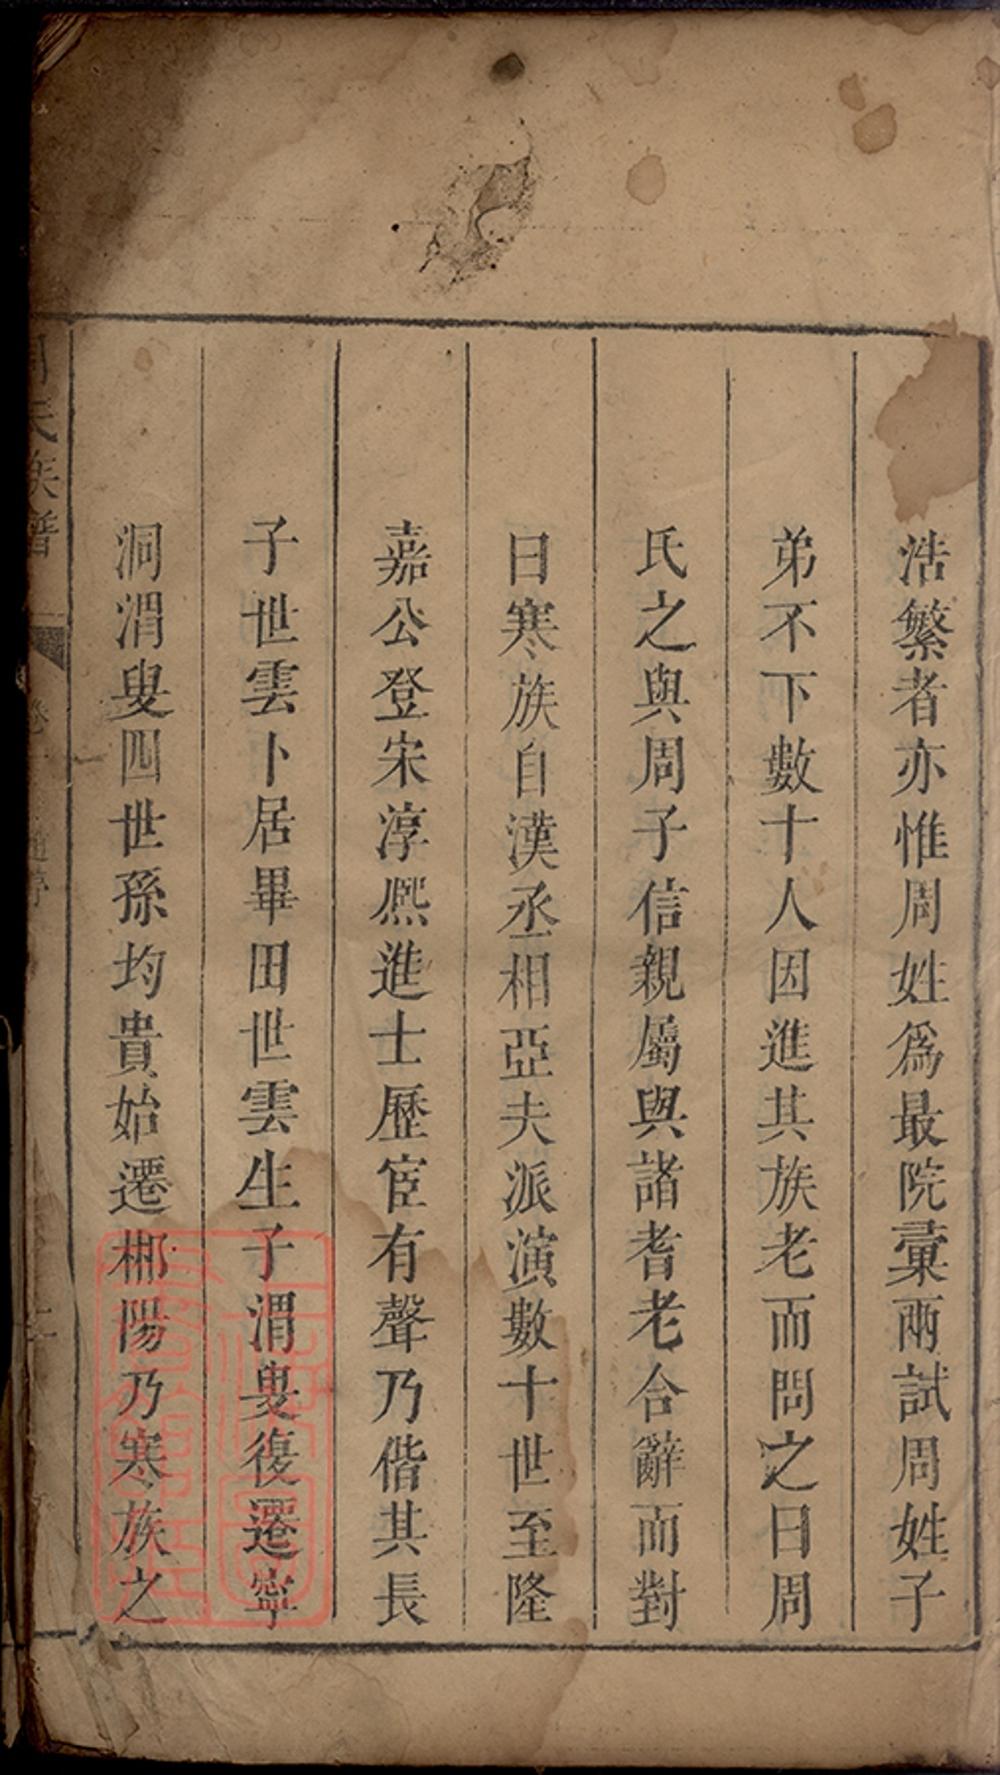 浩繁者亦惟周姓爲最院彙兩試周姓子
弟不下數十人因進其族老而問之曰周
氏之與周子信親屬與諸耆老合辭而對
曰寒族自漢丞相亞夫派演數十世至隆
嘉公登宋淳熈進士歷宦有聲乃偕其長
子世雲卜居畢田世雲生子渭叟復遷寧
洞渭叟四世孫均貴始遷郴陽乃寒族之
周氏族譜